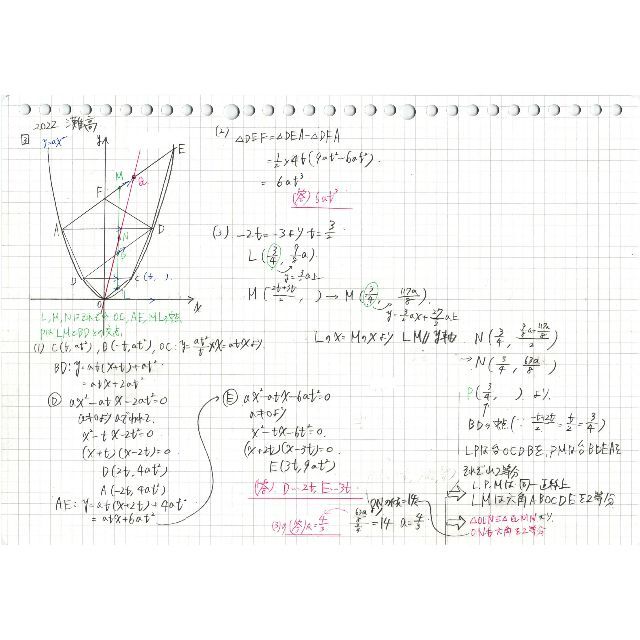 2022 灘高
③ y=ax²
y
E
M
Q
F
A
D
N
P
B
C (t, ).
L
O
x
L, M, NはそれぞれOC, AE, MLの中点
PはLMとBDとの交点.
(1) C(t, at²), B(-t, at²), OC: y=at²/t×x=atxより.
BD: y=at(x+t)+at²
=atx+2at²
Ⓓ ax²-atx-2at²=0
a≠0よりaでわって.
x²-tx-2t²=0.
(x+t)(x-2t)=0
D(2t, 4at²)
A(-2t, 4at²)
AE: y=at(x+2t)+4at²
=atx+6at²
Ⓔ ax²-atx-6at²=0
a≠0より
x²-tx-6t²=0.
(x+2t)(x-3t)=0.
E(3t, 9at²)
(答) D…2t, E…3t.
(2) △DEF=△DEA-△DFA
=1/2×4t(9at²-6at²).
=6at³
(答) 6at³
(3) -2t=-3より t=3/2
L(3/4, 9/8a)
y=3/2a上
M(-2t+3t/2, ) → M(3/4, 117a/8)
y=3/2ax+27/2a上
Lのx=Mのxより LM//y軸
N(3/4, 9/8a+117a/8/2)
→N(3/4, 63a/8)
P(3/4, ) は.
BDの中点(∵ -t+2t/2=t/2=3/4)
LPは台OCDBを, PMは台BDEAを
それぞれ2等分
L.P.Mは同一直線上
LMは六角ABOCDEを2等分
△OLN≡△QMNより.
ONも六角を2等分
ONの傾き=14
63a/8/3/4=14 a=4/3
(3)の(答) a=4/3